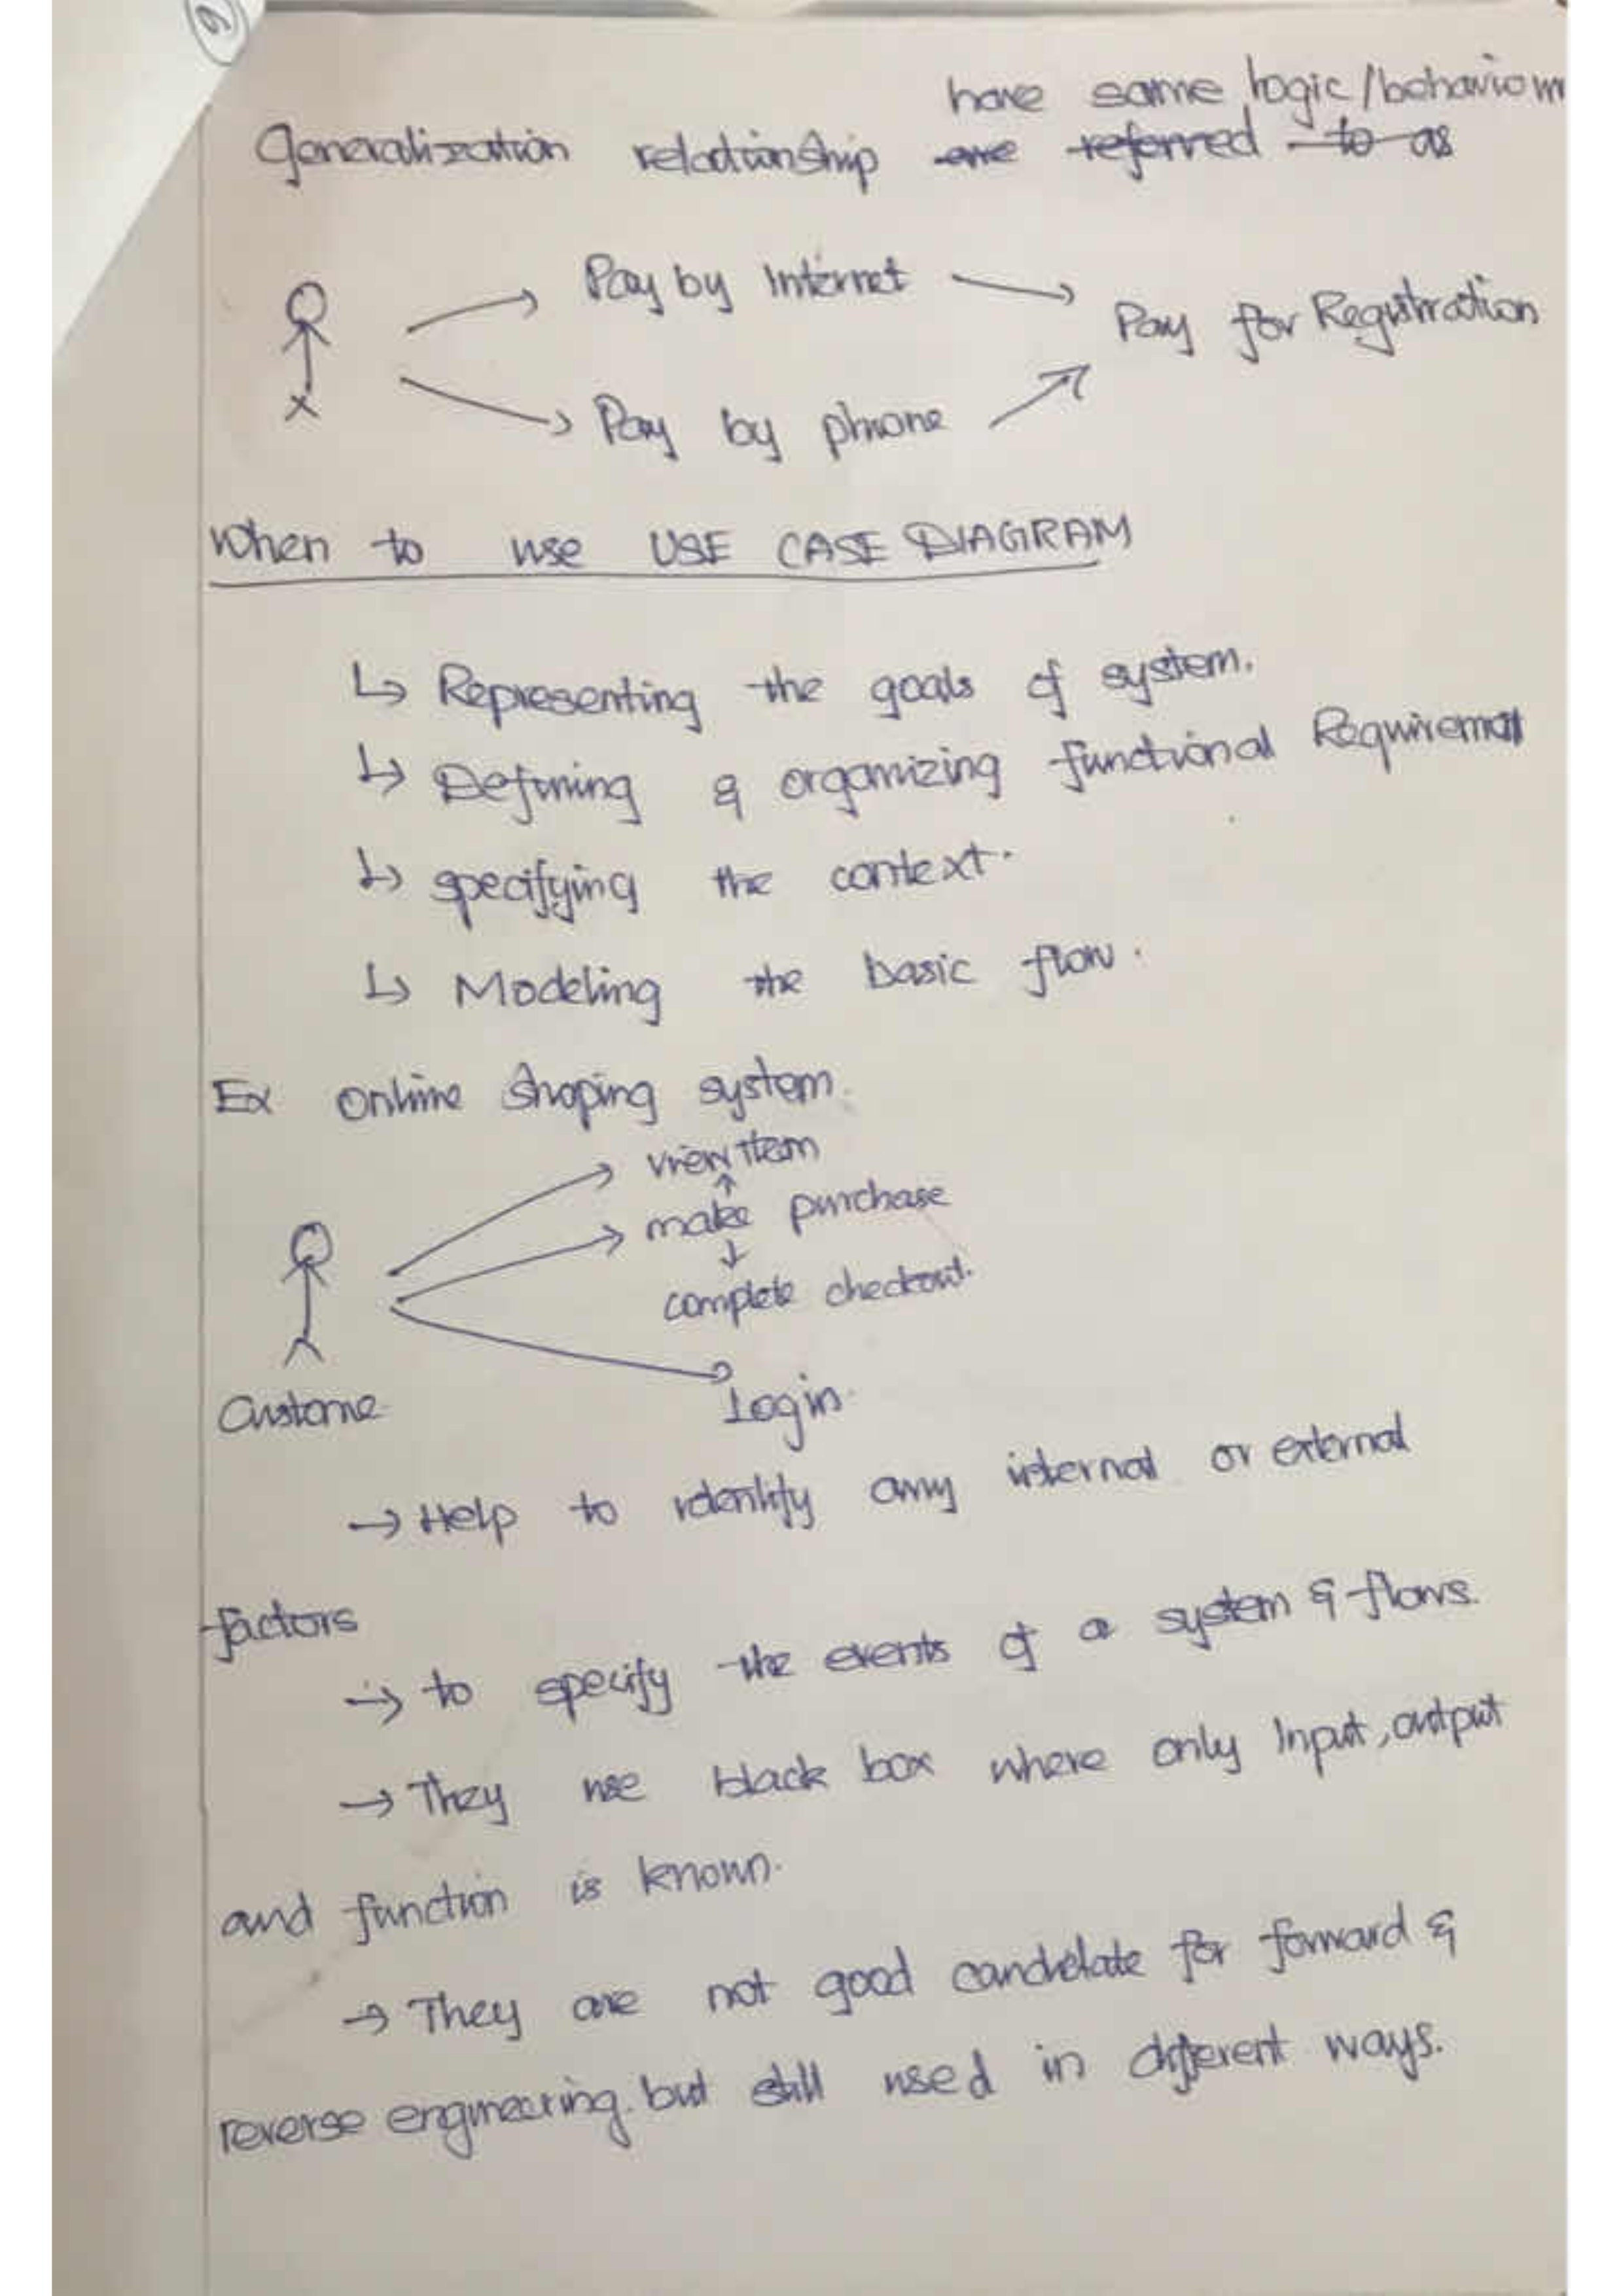 6
have same logic/behaviour
Generalization relationship are referred to as
Pay by Internet
Pay for Registration
Pay by phone
When to use USE CASE DIAGRAM
Representing the goals of system.
Defining & organizing functional Requirement
specifying the context.
Modeling the basic flow.
Ex online shoping system.
view item
make purchase
complete checkout.
Custome
Login.
→ Help to identify any internal or external
factors
→ to specify the events of a system & flows.
→ They use black box where only Input, output
and function is known.
→ They are not good candidate for forward &
reverse engineering. but still used in different ways.